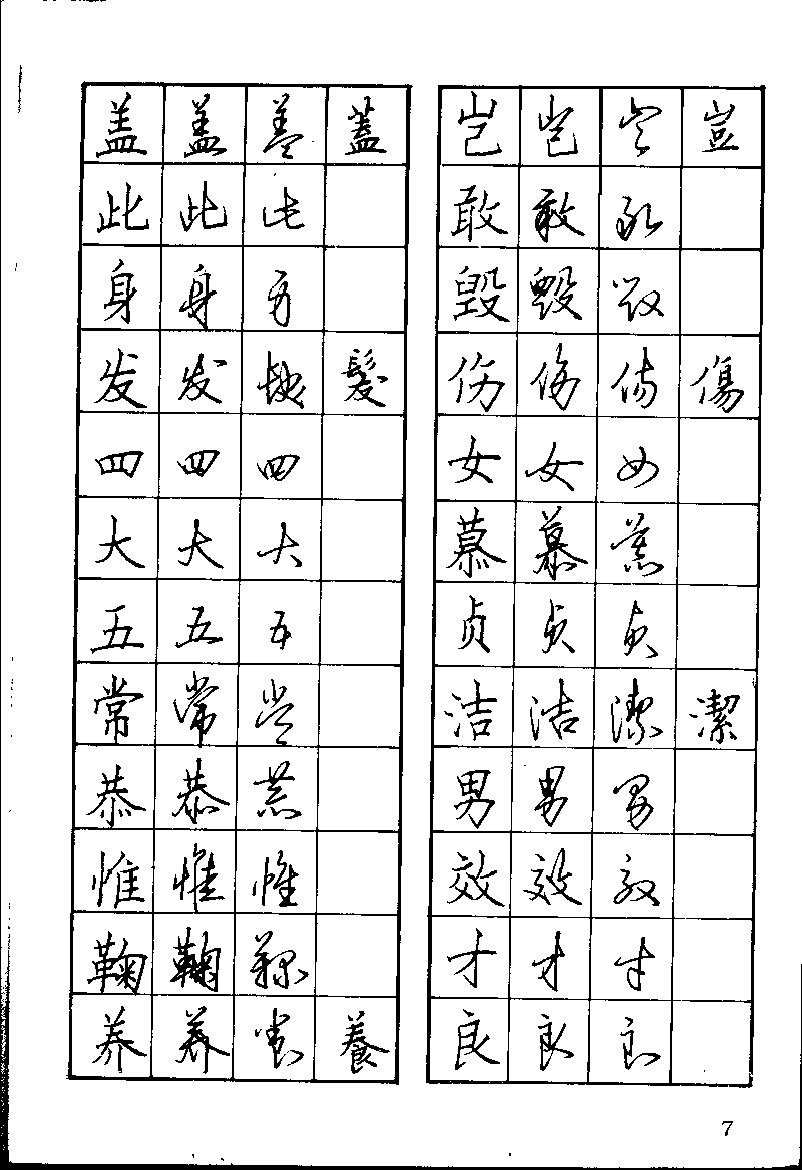 盖 盖 盖 蓋
此 此 此
身 身 身
发 发 发 髮
四 四 四
大 大 大
五 五 五
常 常 常
恭 恭 恭
惟 惟 惟
鞠 鞠 鞠
养 养 养 養
岂 岂 岂 豈
敢 敢 敢
毁 毁 毁
伤 伤 伤 傷
女 女 女
慕 慕 慕
贞 贞 贞
洁 洁 潔 潔
男 男 男
效 效 效
才 才 才
良 良 良
7